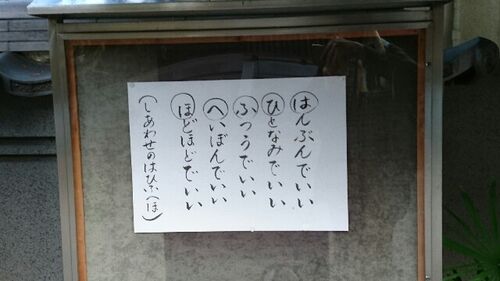 はんぶんでいい
ひとなみでいい
ふつうでいい
へいぼんでいい
ほどほどでいい
(しあわせのはひふへほ)